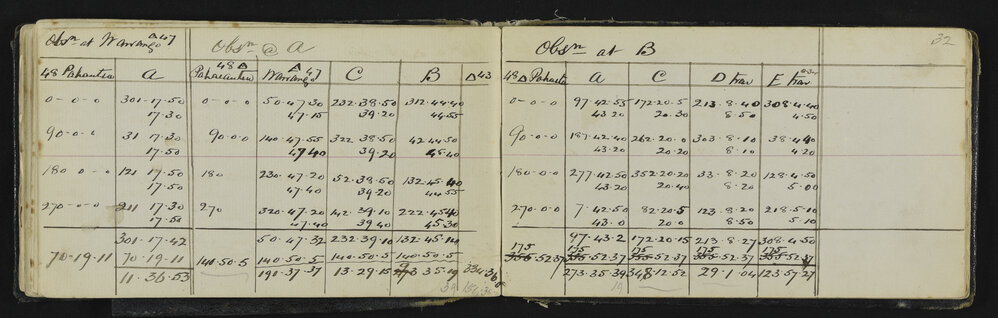 Obsn at Warrango △47
Obsn @ A
48 Pahautea A
48 △ Pahaeautea △ 47 Warrango C B △43
0-0-0 301-17.50 0-0-0 50.47.30 232.38.50 312.44.40
17.30 47.15 39.20 44.55
90-0-0 31 17.30 90-0-0 140.47.55 322.38.50 42.44.50
17.50 47.40 39.20 45.40
180 0-0 121 17.50 180 230.47.20 52.38.50 132.45.40
17.50 47.40 39.20 44.55
270-0-0 211 17.30 270 320.47.20 142.39.10 222.45.40
17.50 47.40 39.40 45.30
301-17-42 50.47.32 232.39.10 132.45.14
70-19-11 70-19-11 140.50.5 140.50.5 140.50.5 140.50.5
11.36.53 191.37.37 13.29.15 273 35.19
39
Obsn at B
32
48 △ Pahautea A C D Trav E Trav
0-0-0 97.42.55 172.20.5 213.8.40 308.4.40
43.20 20.30 8.50 4.50
90-0-0 187.42.40 262.20.0 303.8.10 38.4.40
43.20 20.20 8.10 4.20
180-0-0 277.42.50 352.20.20 33.8.20 128.4.50
43.20 20.40 8.20 5.00
270-0-0 7.42.50 82.20.5 123.8.20 218.5.10
43.0 20.0 8.50 5.10
97.43.2 172.20.15 213.8.27 308.4.50
175 175 175 175 175
355.52.37 355.52.37 355.52.37 355.52.37 355.52.37
273.35.39 348.12.52 29.1.04 123.57.27
19